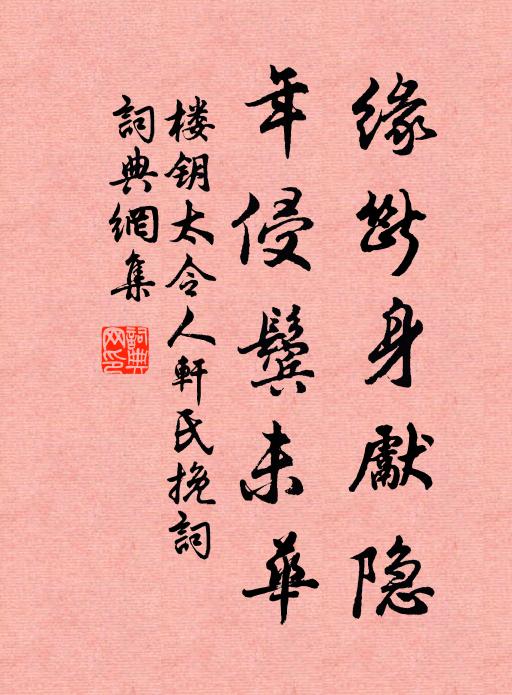 缘断身獻隐
年侵鬓未華
楼钥太令人軒氏挽詞
詞典網集
詞典
网印